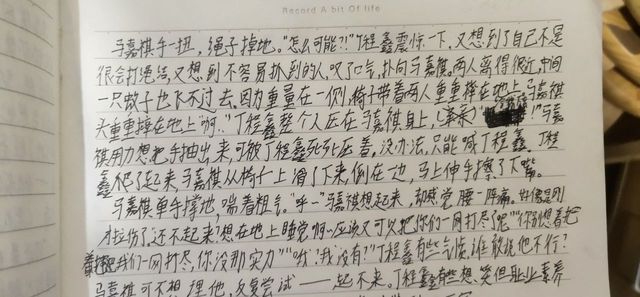 Record A bit Of life
马嘉祺手一扭，绳子掉地。"怎么可能?!"丁程鑫震惊一下，又想到了自己不是
很会打绳结，又想到不容易抓到的人，叹了口气，扑向马嘉祺。两人离得很近，中间
一只蚊子也飞不过去。因为重量在一侧，椅子带着两人重重摔在地上。马嘉祺
头重重摔在地上"啊.."丁程鑫整个人压在马嘉祺身上，"!马嘉
祺用力想把手抽出来，可被丁程鑫死死压着。没办法，只能喊丁程鑫，丁程
鑫爬了起来，马嘉祺从椅子上滑了下来，倒在一边，马上伸手擦了下嘴。
马嘉祺单手撑地，喘着粗气。"呼—"马嘉祺想起来，却感觉腰一阵痛。好像是刚
才拉伤了。还不起来?想在地上睡觉啊~应该又可以把你们一网打尽了呢""你别想着把
我们一网打尽，你没那实力""哦?我没有?"丁程鑫有些气愤，谁敢说他不行?
马嘉祺可不想理他，反复尝试——起不来。丁程鑫有些想笑但职业素养